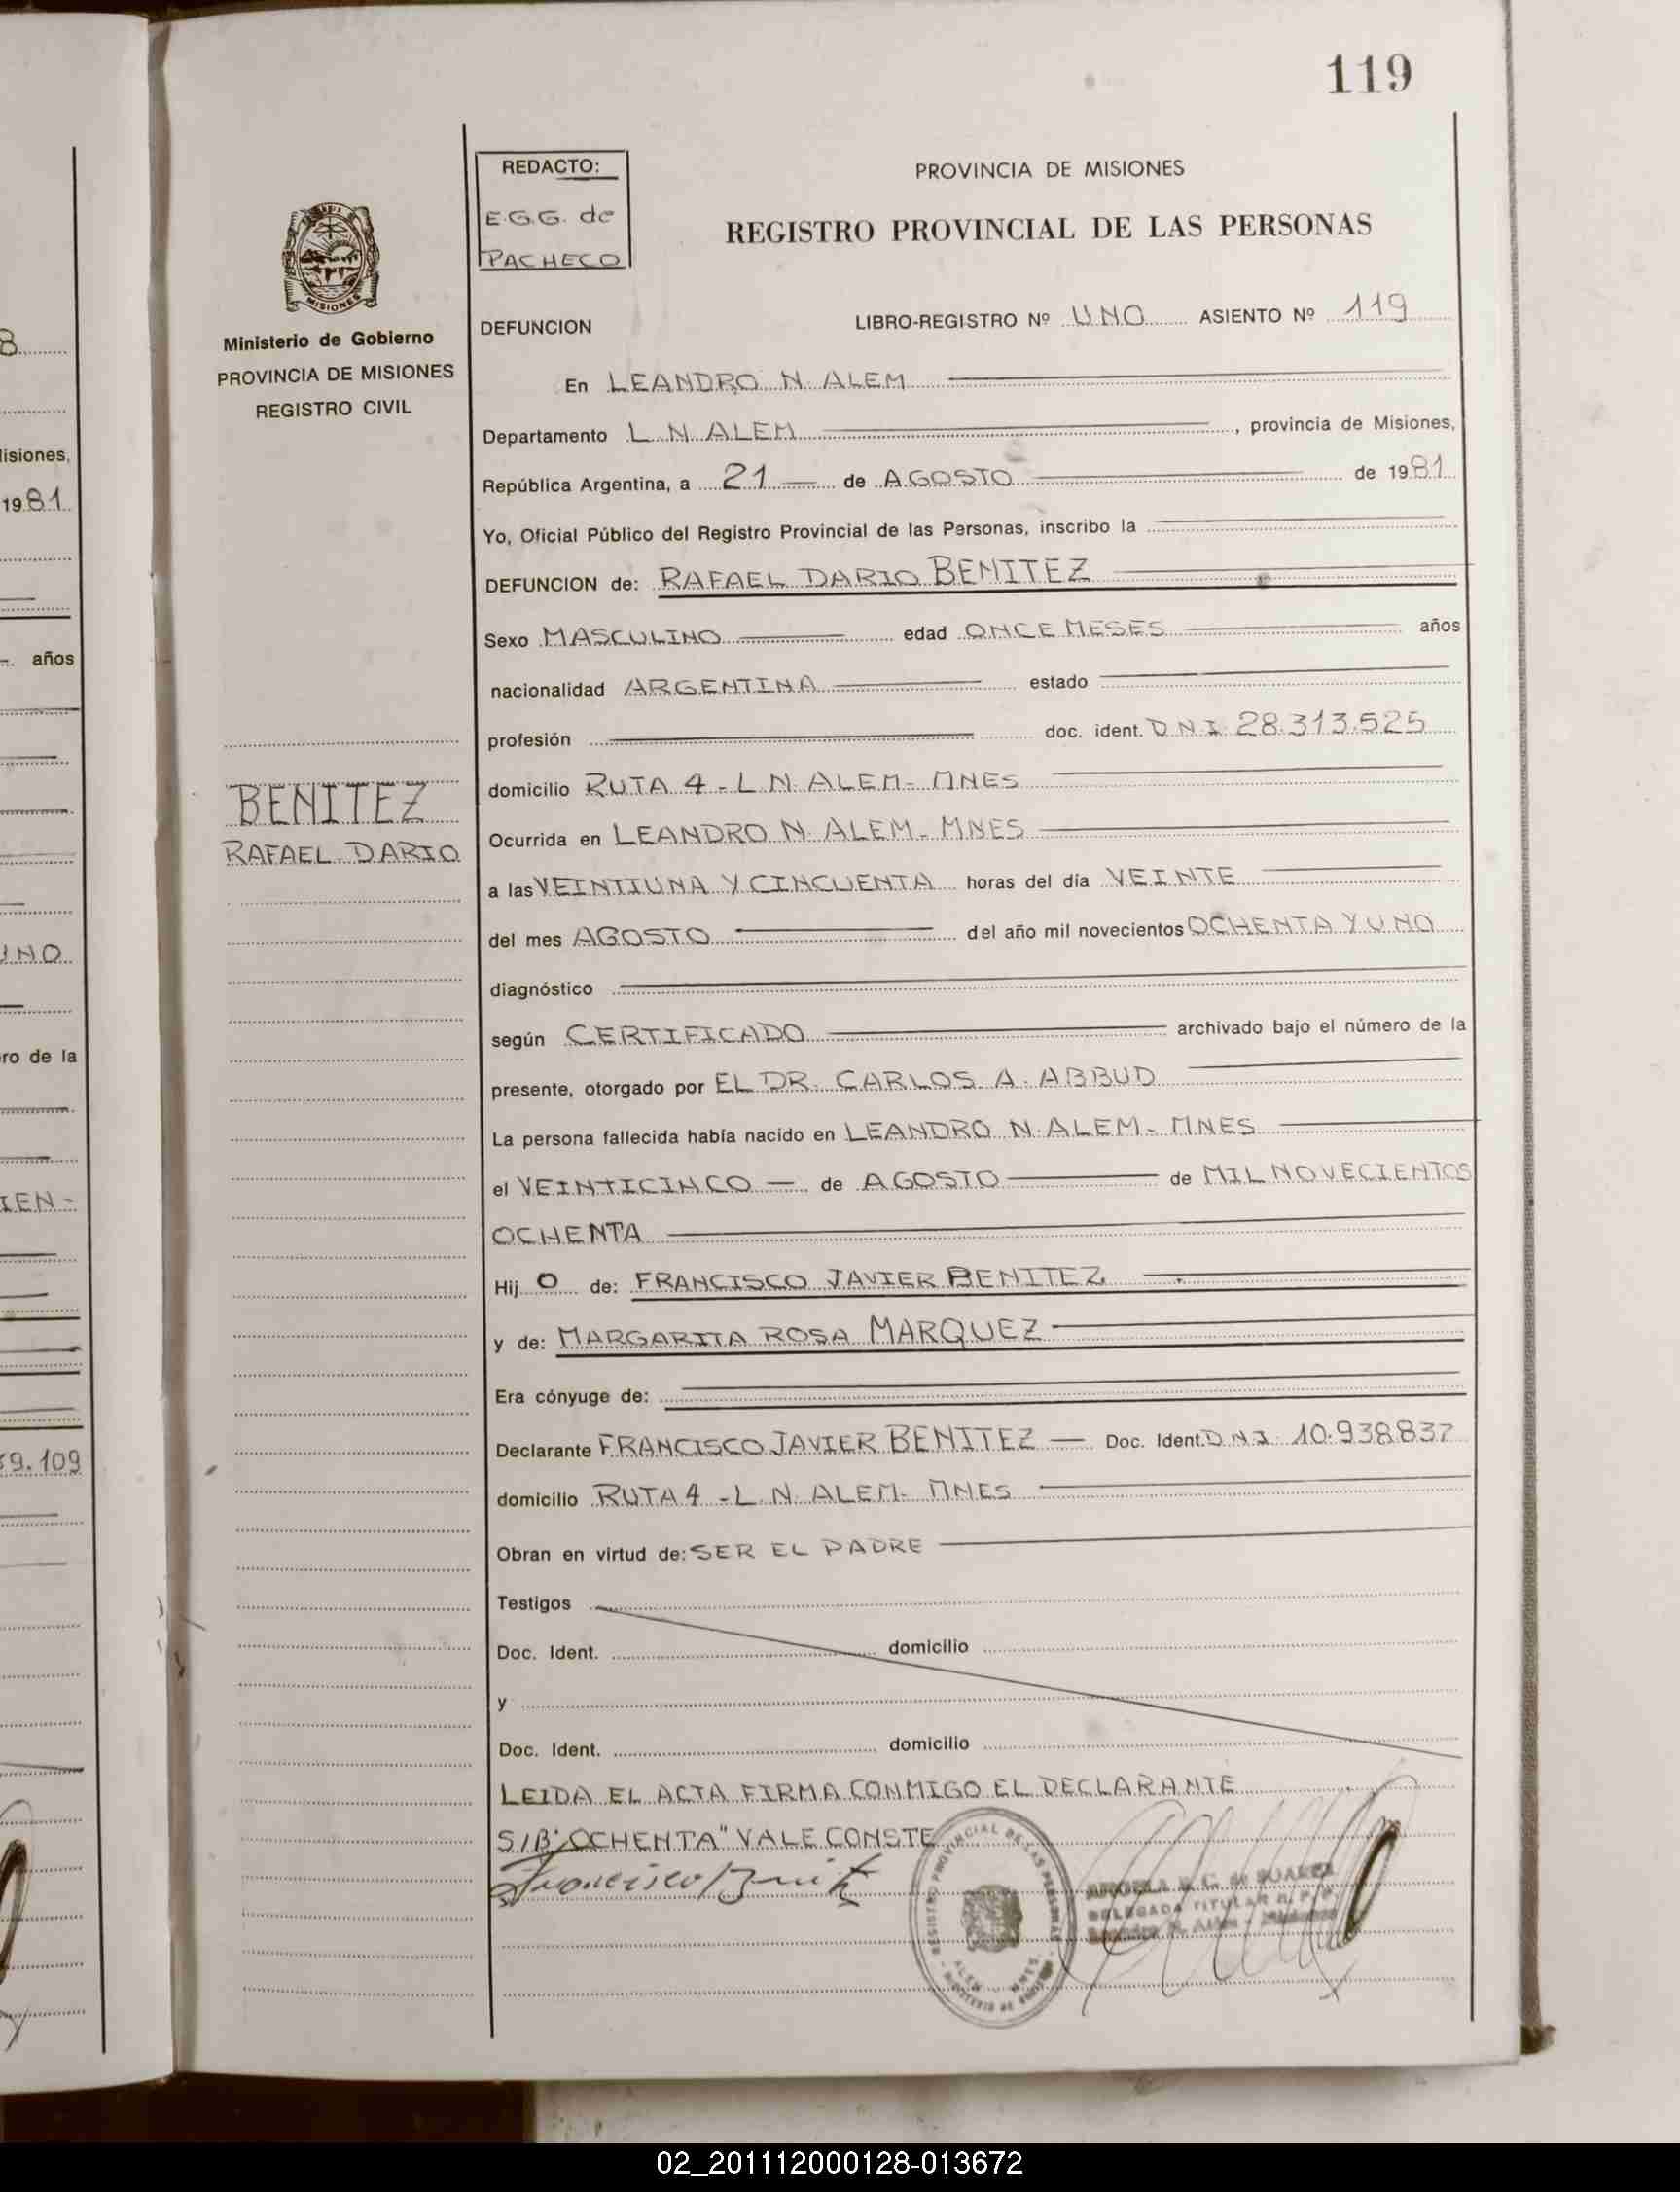 119
REDACTO:
E.G.G. de
PACHECO
PROVINCIA DE MISIONES
REGISTRO PROVINCIAL DE LAS PERSONAS
MISIONES
Ministerio de Gobierno
PROVINCIA DE MISIONES
REGISTRO CIVIL
DEFUNCION LIBRO-REGISTRO Nº UNO ASIENTO Nº 119
En LEANDRO N. ALEM
Departamento L. N. ALEM, provincia de Misiones,
República Argentina, a 21 de AGOSTO de 1981
Yo, Oficial Público del Registro Provincial de las Personas, inscribo la
DEFUNCION de: RAFAEL DARIO BENITEZ
Sexo MASCULINO edad ONCE MESES años
nacionalidad ARGENTINA estado
profesión doc. ident. D.N.I. 28.313.525
domicilio RUTA 4 - L.N. ALEM - MNES
BENITEZ
RAFAEL DARIO
Ocurrida en LEANDRO N. ALEM - MNES
a las VEINTIUNA Y CINCUENTA horas del día VEINTE
del mes AGOSTO del año mil novecientos OCHENTA Y UNO
diagnóstico
según CERTIFICADO archivado bajo el número de la
presente, otorgado por EL DR. CARLOS A. ABBUD
La persona fallecida había nacido en LEANDRO N. ALEM - MNES
el VEINTICINCO de AGOSTO de MIL NOVECIENTOS
OCHENTA
Hijo de: FRANCISCO JAVIER BENITEZ
y de: MARGARITA ROSA MARQUEZ
Era cónyuge de:
Declarante FRANCISCO JAVIER BENITEZ Doc. Ident. D.N.I. 10.938.837
domicilio RUTA 4 - L.N. ALEM - MNES
Obran en virtud de: SER EL PADRE
Testigos
Doc. Ident. domicilio
y
Doc. Ident. domicilio
LEIDA EL ACTA FIRMA CONMIGO EL DECLARANTE
S/B "OCHENTA" VALE CONSTE
Francisco Benitez
REGISTRO PROVINCIAL DE LAS PERSONAS
ALEM MNES
DELEGADA TITULAR R. P. P.
Leandro N. Alem - Misiones
8
isiones,
1981
años
UNO
ro de la
IEN -
9.109
02_201112000128-013672